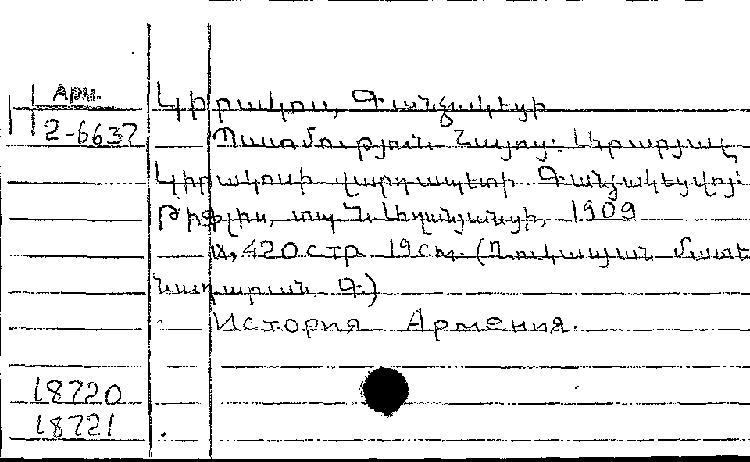 Арм.
2-6637
Կիրակոս, Գանձակեցի
Պատմություն Հայոց. Արարյալ
Կիրակոսի վարդապետի Գանձակեցվոյ:
Թիֆլիս, տպ. Ն. Աղանյանցի, 1909
ա, 420 стр. 19 см. (Ղուկասյան մատե
նադարան Գ.)
История Армения.
18720
18721